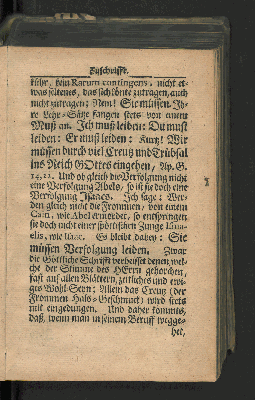 Zuschrifft.
kehr, kein Rarum contingens, nicht et-
was seltenes, das sich könte zutragen, auch
nicht zutragen; Nein! Sie müssen. Ih-
re Lehr-Sätze fangen stets von einem
Muß an. Ich muß leiden: Du must
leiden: Er muß leiden: Kurtz! Wir
müssen durch viel Creutz und Trübsal
ins Reich GOttes eingehen, Ap. G.
14, 22. Und ob gleich die Verfolgung nicht
eine Verfolgung Abels, so ist sie doch eine
Verfolgung Isaacs. Ich sage: Wer-
den gleich nicht die Frommen, von einem
Cain, wie Abel ermordet, so entspringen
sie doch nicht einer spöttischen Zunge Isma-
elis, wie Isaac. Es bleibt dabey: Sie
müssen Verfolgung leiden. Zwar
die Göttliche Schrifft verheisset denen, wel-
che der Stimme des HErrn gehorchen,
fast auf allen Blättern, zeitliches und ewi-
ges Wohl-Seyn; Allein das Creutz (der
Frommen Hals-Geschmuck) wird stets
mit eingedungen. Und daher kommts,
daß, wenn man in seinem Beruff wegge-
het,